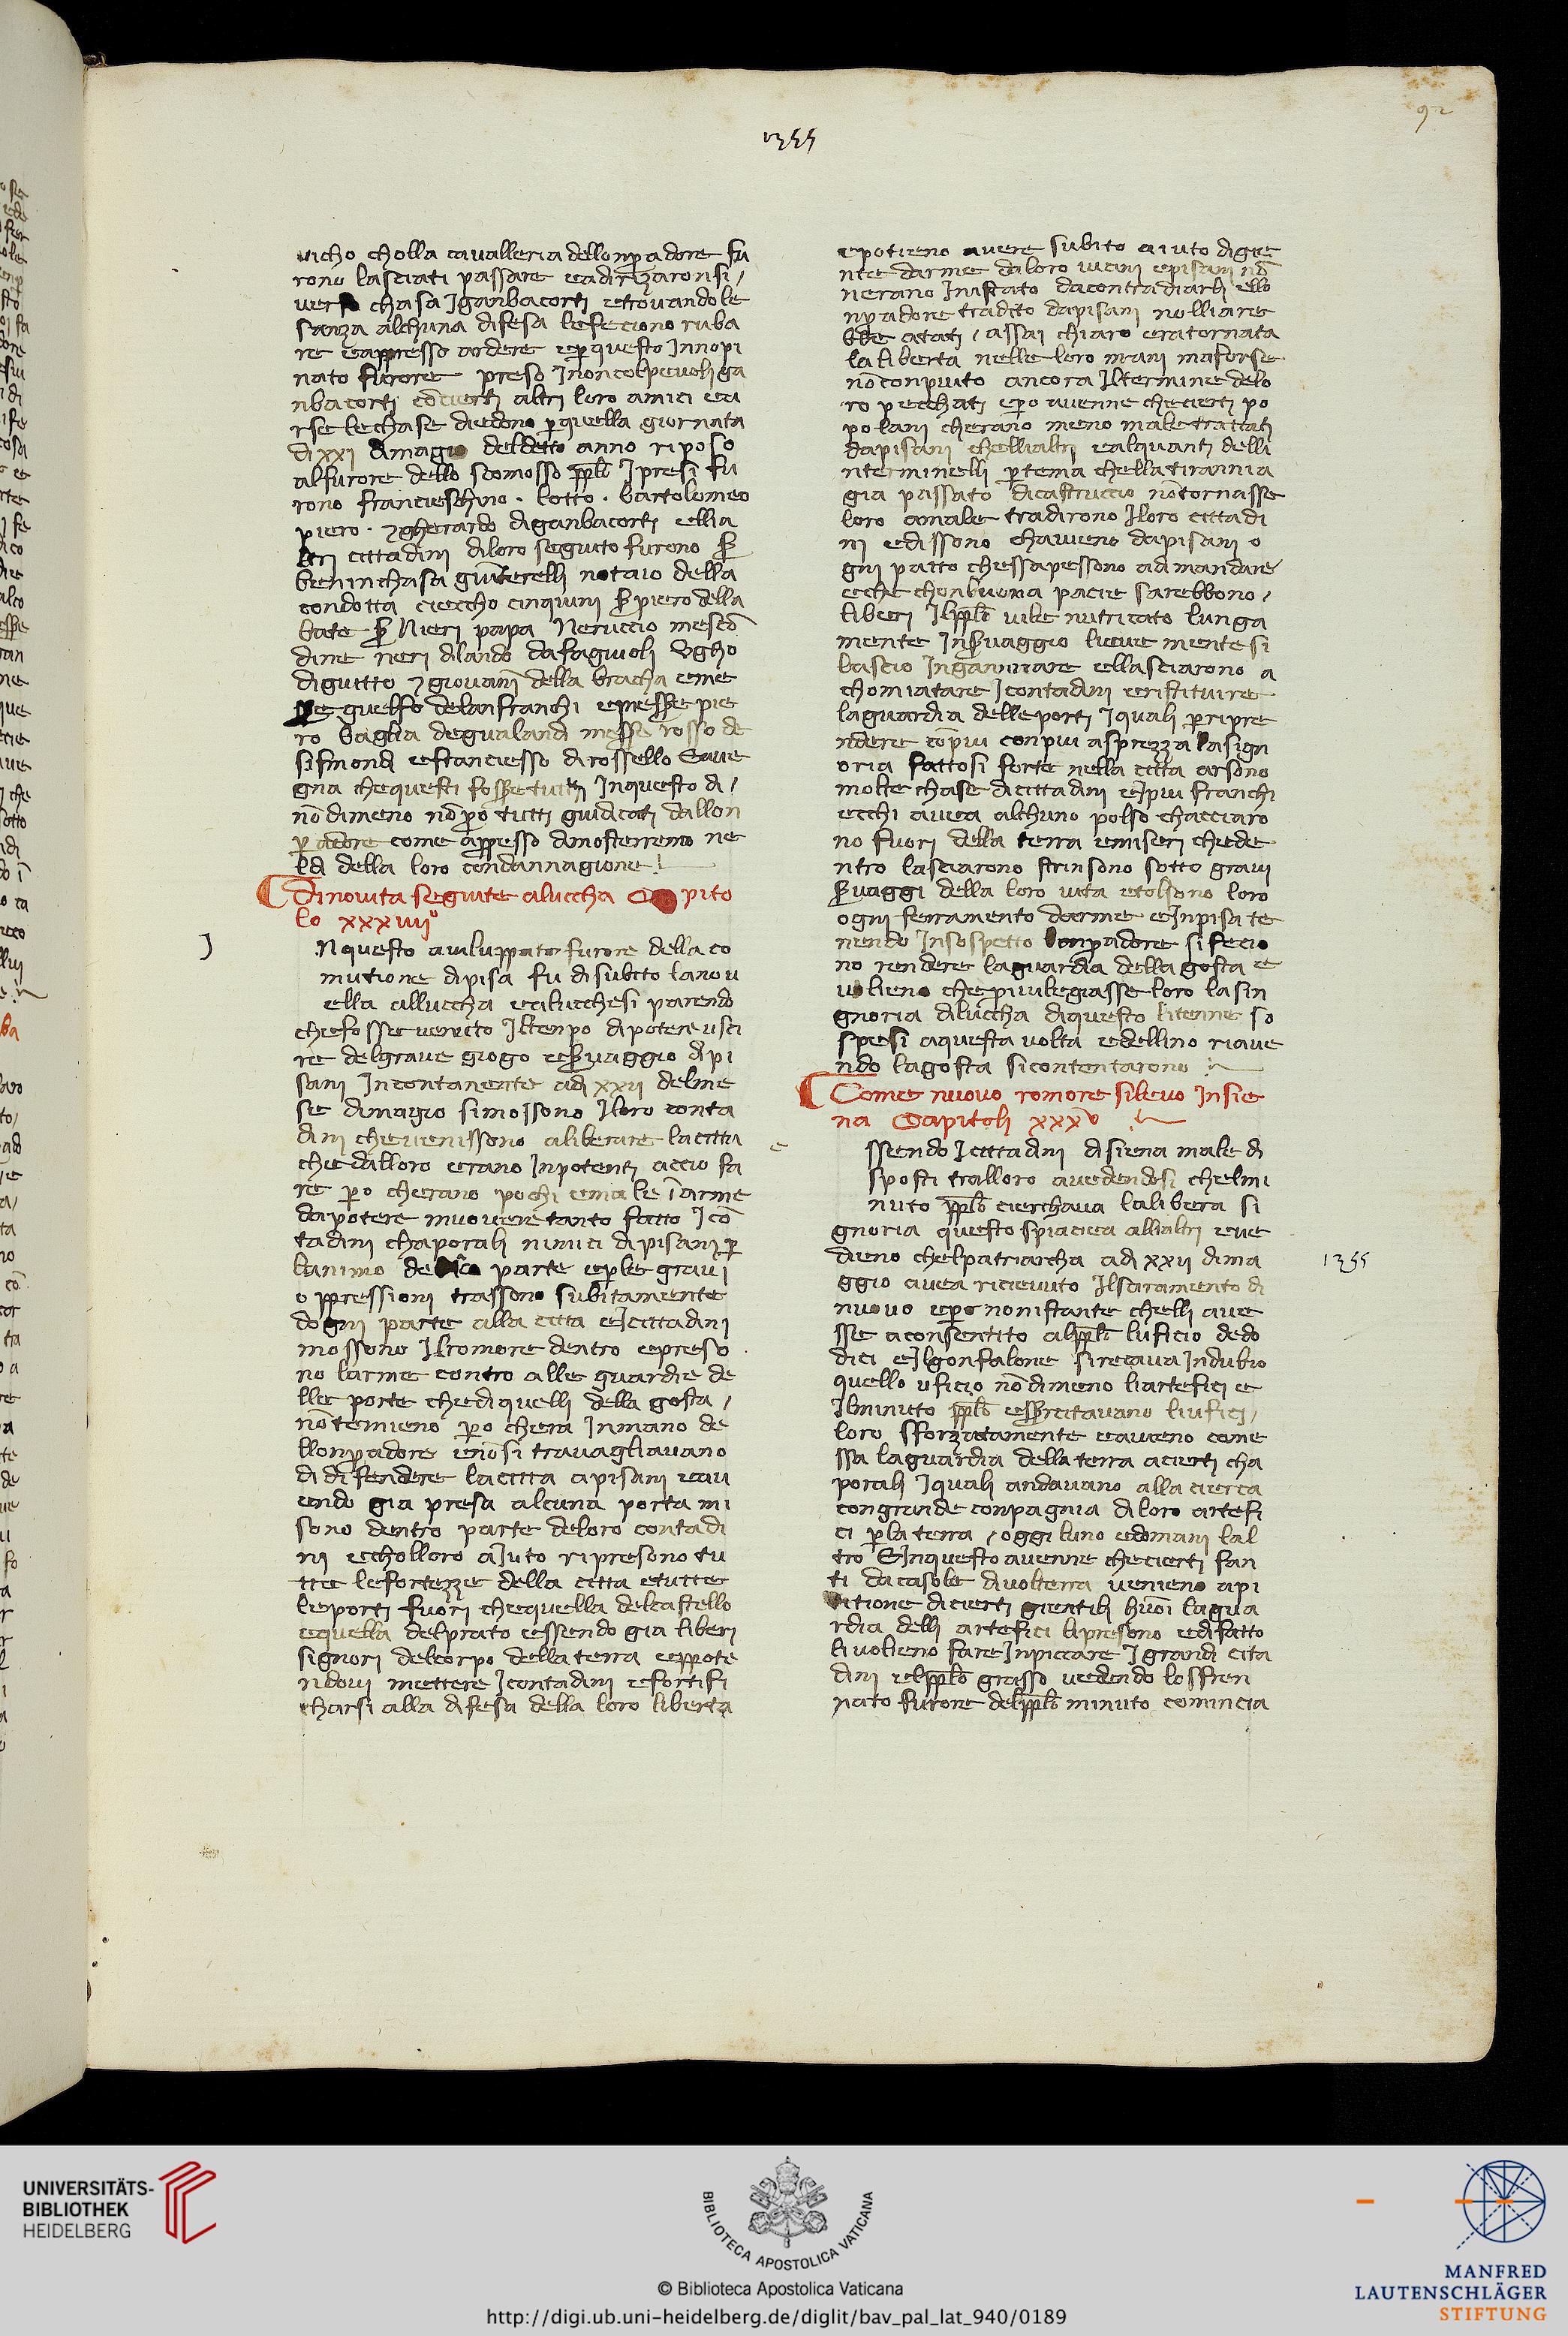 92
1355
vicho cholla cavalleria dellonpadore fu
rono lasciati passare eadirizzaronsi /
verso chasa Jganbacorti etrovandole
sanza alchuna difesa lefeciono ruba
re eappresso ardere epquesto Innopi
nato furore preso Jnoncolpevoli ga
nbacorti cōcierti altri loro amici ea
rse lechase diedono pquella giornata
di xxi dimagio deldetto anno riposo
alfurore dello scomosso ppl̄o Jpresi fu
rono francieschino . lotto . bartolomeo
piero . 7gherardo diganbacorti ellia
ltri cittadini diloro seguito furono S
beninchasa giūterelli notaio della
condotta cieccho cinquini S piero della
bate S Nieri papa Neruccio mescō
dine neri dilando dafagiuoli Vgho
diguitto 7giovanī della bracha eme
sse guelfo delanfranchi emesse pie
ro baglia degualandi messe rosso de
sifmondi efranciesso dirossello Save
gna chequesti fossetutti Inquesto di /
nōdimeno nōpo tutti guidicati dallon
padore come appresso dimosterremo ne
ldi della loro condannagione
Dinovita seguite aluccha Capito
lo xxxiiijº
J
Nquesto aviluppato furore della co
mutione dipisa fu disubito lanov
ella alluccha ealucchesi parendo
chefosse venuto Jltenpo dipotere usci
re delgrave giogo eservaggio dipi
sani Incontanente adi xxii delme
se dimagio simossono Jloro conta
dini chevenissono aliberare lacitta
chedalloro erano Inpotenti accio fa
re po cherano pochi emale īarme
dapotere muovere tanto fatto Jcō
tadini chaporali nimici dipisani p
lanimo della parte eple gravi
oppressioni trassono subitamente
dogni parte alla citta eJcittadini
mossono Jlromore dentro epreso
no larme contro alle guardie de
lle porte chediquelli della gosta /
nōtemieno po chera Inmano de
llonpadore enōsi travagliavano
di difendere lacitta apisani eav
endo gia presa alcuna porta mi
sono dentro parte deloro contadi
ni echolloro aJuto ripresono tu
tte lefortezze della citta etutte
leporti fuori chequella delcastello
equella delprato essendo gia liberi
signori delcorpo della terra eppote
ndovi mettere Jcontadini efortifi
charsi alla difesa della loro liberta
epotieno avere subito aiuto digiē
nte darme daloro vicini episani nō
nerano Inistato dacontradiarli ello
npadore tradito dapisani nolliare
bbe atati / assai chiaro eratornata
laliberta nelle loro mani maforse
nōconpiuto ancora Jltermine delo
ro pecchati epo avenne checierti po
polani cherano meno maletrattati
dapisani chellialtri ealquanti delli
nterminelli ptema chellatirannia
gia passato dicastruccio nōtornasse
loro amale tradirono Jloro cittadi
ni edissono chavieno dapisani o
gni patto chessapessono adimandare
ecche chonbuona pacie sarebbono /
liberi Jlppl̄o vile nutricato lunga
mente Inservaggio lieve mente si
lascio Ingannare ellasciarono a
chomiatare Jcontadini eristituire
laguardia delleporti Jquali pripre
ndere cōpiu conpiu asprezza lasign
oria fattosi forte nella citta arsono
molte chase dicittadini eJpiu franchi
ecchi avea alchuno polso chacciaro
no fuori della terra emiseri chede
ntro lasciarono strinsono sotto gravi
Svaggi della loro vita etolsono loro
ogni ferramento darme eInpisa te
nendo Insospetto lonpadore sifecio
no rendere laguardia dellagosta e
volieno cheprivilegiasse loro lasin
gnoria diluccha diquesto litenne so
spesi aquesta volta edellino riave
ndo lagosta sicontentarono
Come nuovo romore silevo Insie
na Capitoli xxxv
e
ssendo Jcittadini disiena male di
sposti tralloro avedendosi chelmi
nuto ppl̄o cierchava lalibera si
gnoria questo spiaciea allialtri eve
dieno chelpatriarcha adi xxii dima
1355
ggio avea ricievuto Jlsaramento di
nuovo epo nonistante chelli ave
sse aconsentito alppl̄o luficio dedo
dici eJlgonfalone sirecava Indubio
quello uficio nōdimeno liartefici e
Jlminuto ppl̄o esercitavano liufici /
loro sforzatamente eavieno come
ssa laguardia della terra acierti cha
porali Jquali andavano alla cierca
congrande conpagnia diloro artefi
ci pla terra / oggi luno edomani lal
tro EInquesto avenne checierti fan
ti dacasole divolterra venieno api
titione dicierti gientili huoī lagua
rdia delli artefici lipresono edifatto
livolieno fare Inpiccare Jgrandi cita
dini elppl̄o grasso vedendo losfren
nato furore delppl̄o minuto comincia
UNIVERSITÄTS-
BIBLIOTHEK
HEIDELBERG
BIBLIOTECA APOSTOLICA VATICANA
© Biblioteca Apostolica Vaticana
http://digi.ub.uni-heidelberg.de/diglit/bav_pal_lat_940/0189
MANFRED
LAUTENSCHLÄGER
STIFTUNG